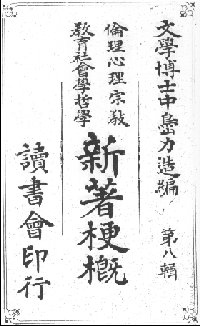 文學博士中島力造編 第八輯
倫理心理宗敎
敎育社會學哲學
新著梗槪
讀書會印行